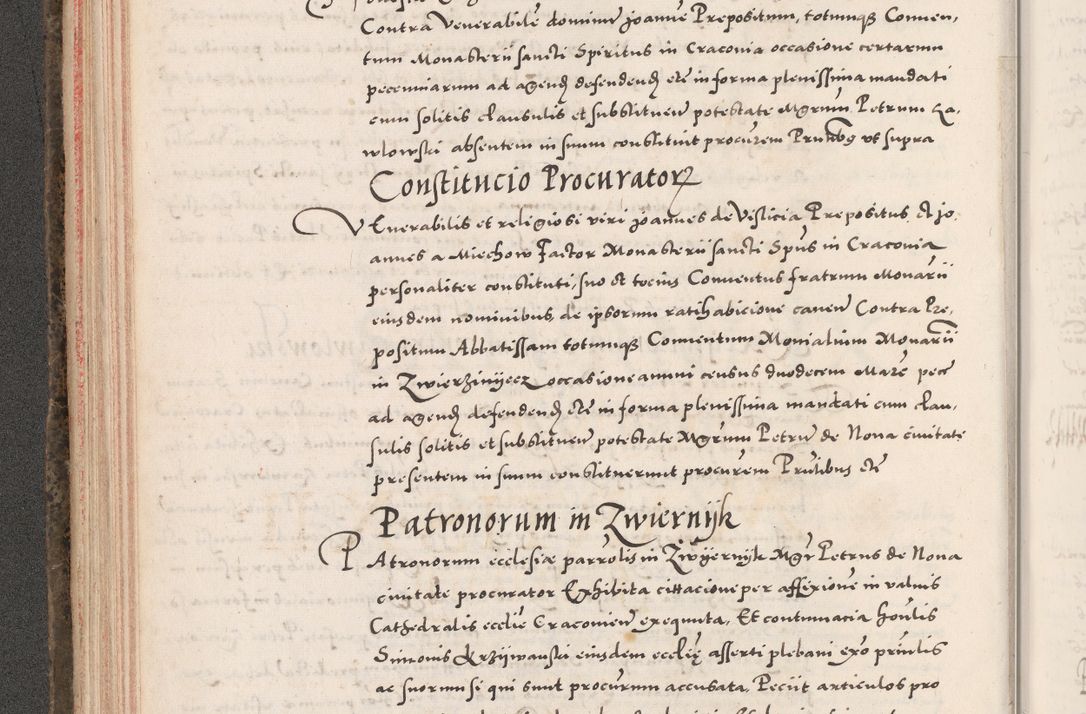 Contra Venerabilē dominū Joannē Prepositum, totumqȝ Conven,
tum Monasterii sancti Spiritus in Craconia occasione certarum
pecuniarum ad agend defendend etc̄ in forma plenissima mandati
cum solitis clausulis et substituen̄ potestate Mgrum Petrum Za,
wlowski absentem in suum constituit procurem Pruti̅bȝ ut supra
Constitucio Procurator
VEnerabilis et religiosi viri Joannes de Vislicia Prepositus et Jo,
annes a Miechow Factor Monasterii sancti Sp̄us in Craconia
personaliter constituti, suo et tocius Conventus fratrum Monar̄ii
eiusdem nominibus, de ipsorum ratihabicione caven̄ Contra Pre,
positum Abbatissam totumqȝ Conventum Monialium Monar̄ii
in Zwierzinyecz occasione annui census duodecem Marē pecc̄
ad agend defendend etc̄ in forma plenissima mandati cum clau,
sulis solitis et substituen̄ potestate Mgrum Petrū de Nova civitate
presentem in suum constituerunt procurem Prutibus etc̄
Patronorum in Zwiernijk
PAtronorum ecclesiæ parrolis in Zwyernyk Mgr Petrus de Nova
civitate procurator Exhibita cittacione per affixionē in valvis
Cathedralis ecclie Craconien̄ exequuta, Et contumacia honlis
Simonis Krzijwanski eiusdem ecclię asserti plebani exo priulis
ac suorum si qui sunt procurum accusata, Peciit articulos pro